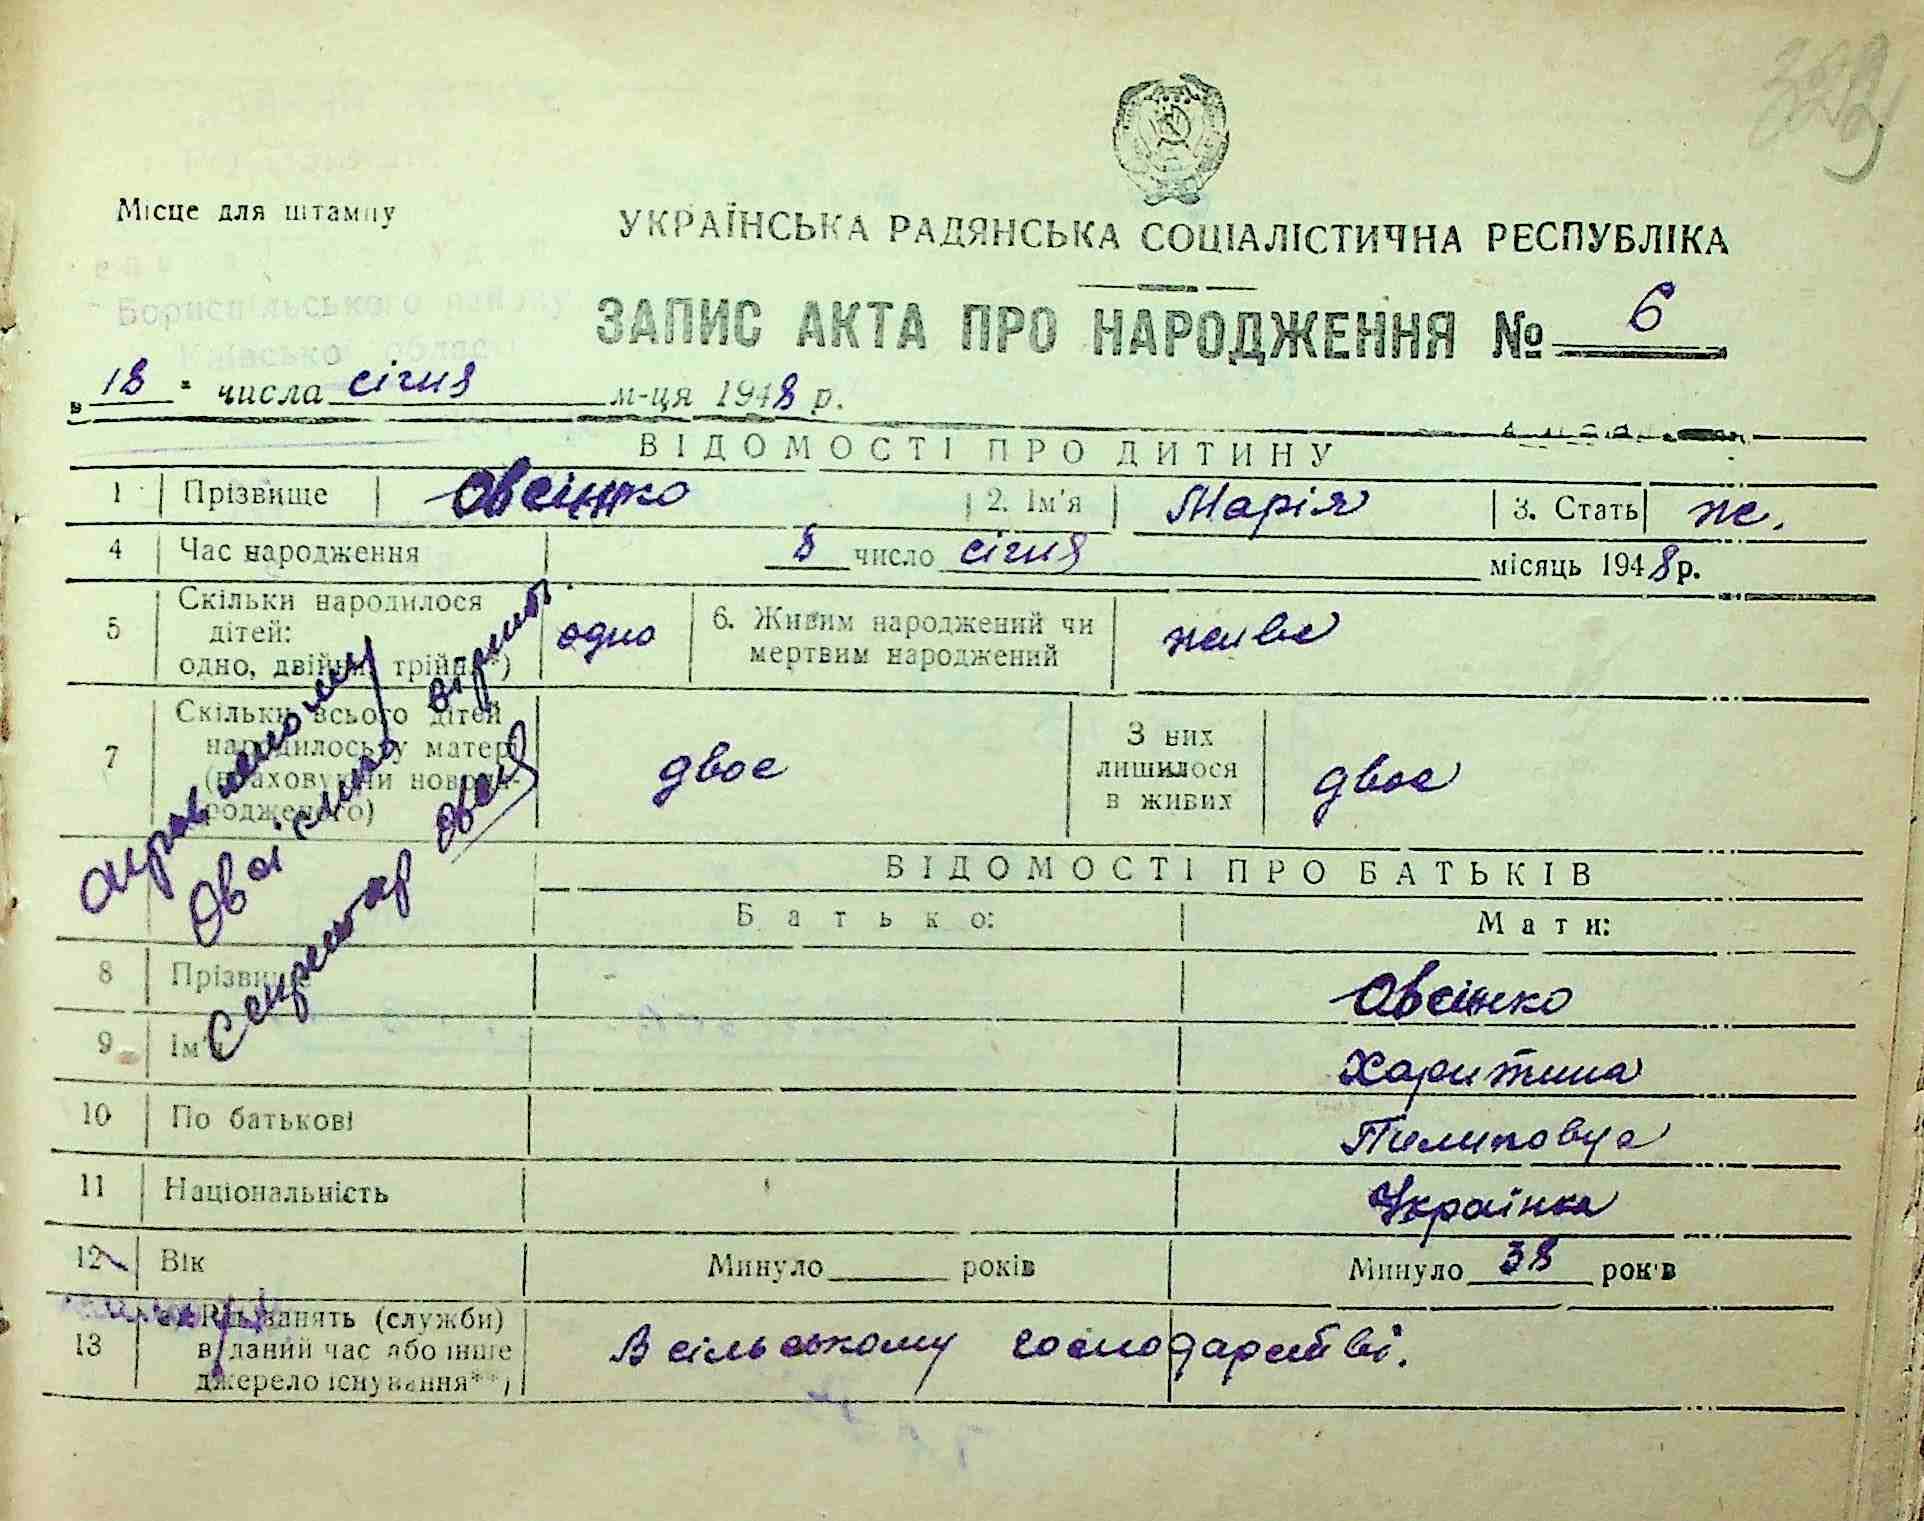 329
Місце для штампу
УКРАЇНСЬКА РАДЯНСЬКА СОЦІАЛІСТИЧНА РЕСПУБЛІКА
ЗАПИС АКТА ПРО НАРОДЖЕННЯ № 6
Бориспільського району
Київської області
„ 18 " числа січня м-ця 1948 р.
ВІДОМОСТІ ПРО ДИТИНУ
1 Прізвище Овсієнко 2. Ім'я Марія 3. Стать ж.
4 Час народження 8 число січня місяць 1948 р.
5 Скільки народилося дітей: одно, двійня, трійня*) одно 6. Живим народжений чи мертвим народжений живе
7 Скільки всього дітей народилось у матері (враховуючи новонародженого) двоє З них лишилося в живих двоє
виправленому
Овсієнко вірити.
Секретар
ВІДОМОСТІ ПРО БАТЬКІВ
Батько: Мати:
8 Прізвище Овсієнко
9 Ім'я Харитина
10 По батькові Пилиповна
11 Національність Українка
12 Вік Минуло років Минуло 38 років
13 Рід занять (служби) в даний час або інше джерело існування**) В сільському господарстві.